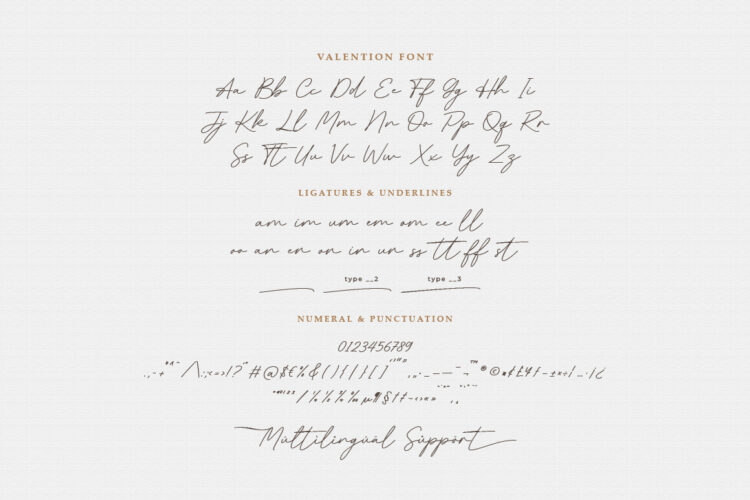 VALENTION FONT
Aa Bb Cc Dd Ee Ff Gg Hh Ii
Jj Kk Ll Mm Nn Oo Pp Qq Rr
Ss Tt Uu Vv Ww Xx Yy Zz
LIGATURES & UNDERLINES
am im um em om ee ll
oo an en on in un ss tt ff st
type __2 type __3
NUMERAL & PUNCTUATION
0123456789
#@$€%&()[]{}
Multilingual Support